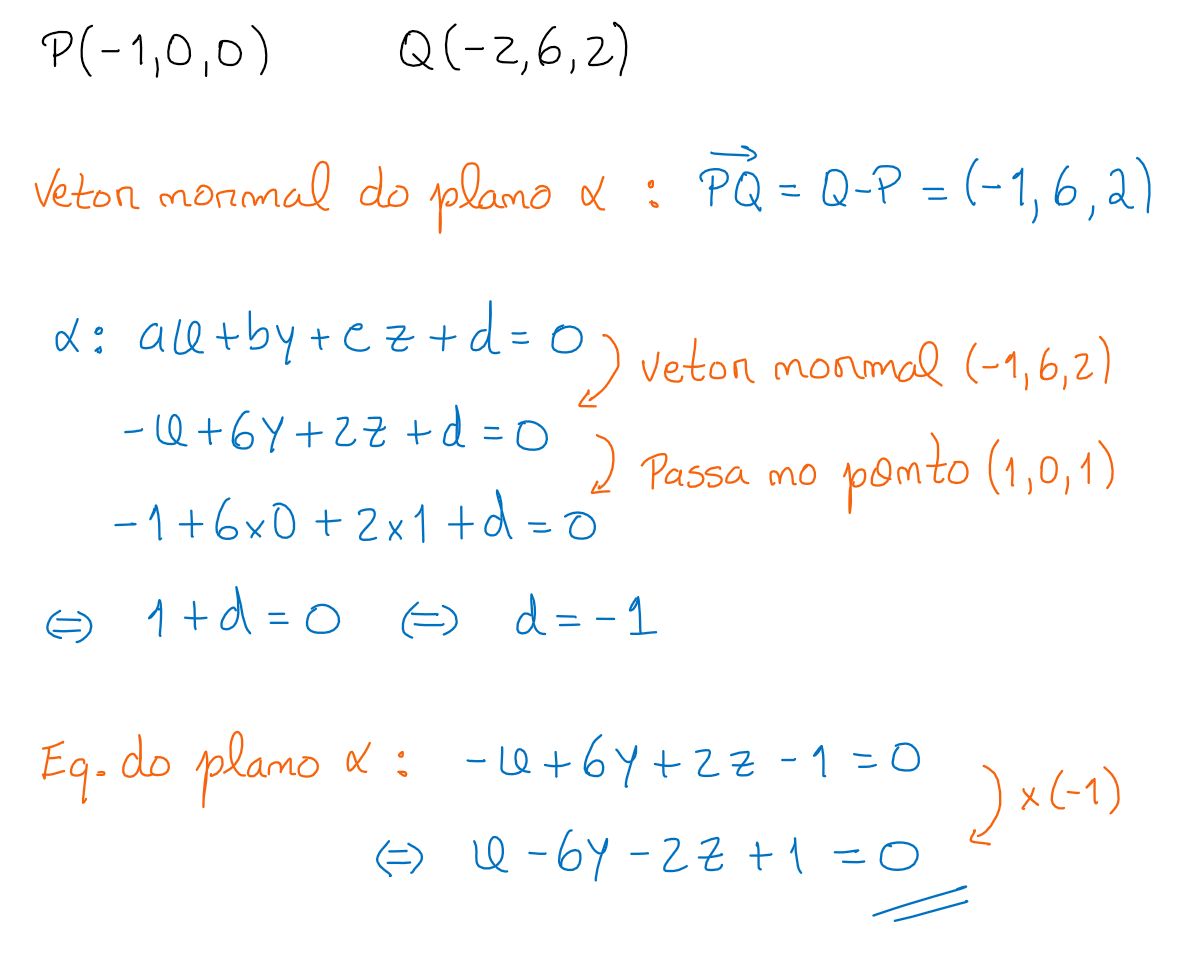 P(-1,0,0) Q(-2,6,2)
Vetor normal do plano α : PQ⃗ = Q-P = (-1,6,2)
α: ax+by+cz+d=0
vetor normal (-1,6,2)
-x+6y+2z+d=0
Passa no ponto (1,0,1)
-1+6×0+2×1+d=0
⇔ 1+d=0 ⇔ d=-1
Eq. do plano α : -x+6y+2z-1=0
×(-1)
⇔ x-6y-2z+1=0